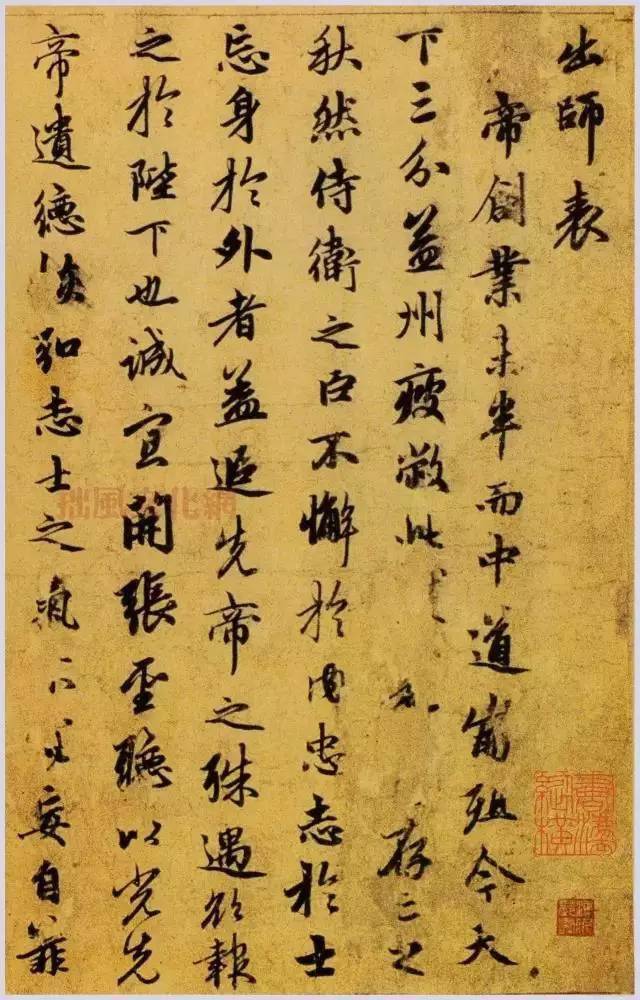 出師表
帝創業未半而中道崩殂今天
下三分益州疲敝此 存亡之
秋然侍衛之臣不懈於内忠志於士
忘身於外者蓋追先帝之殊遇欲報
之於陛下也誠宜開張聖聽以光先
帝遺德恢弘志士之氣不宜妄自菲
拙風文化網